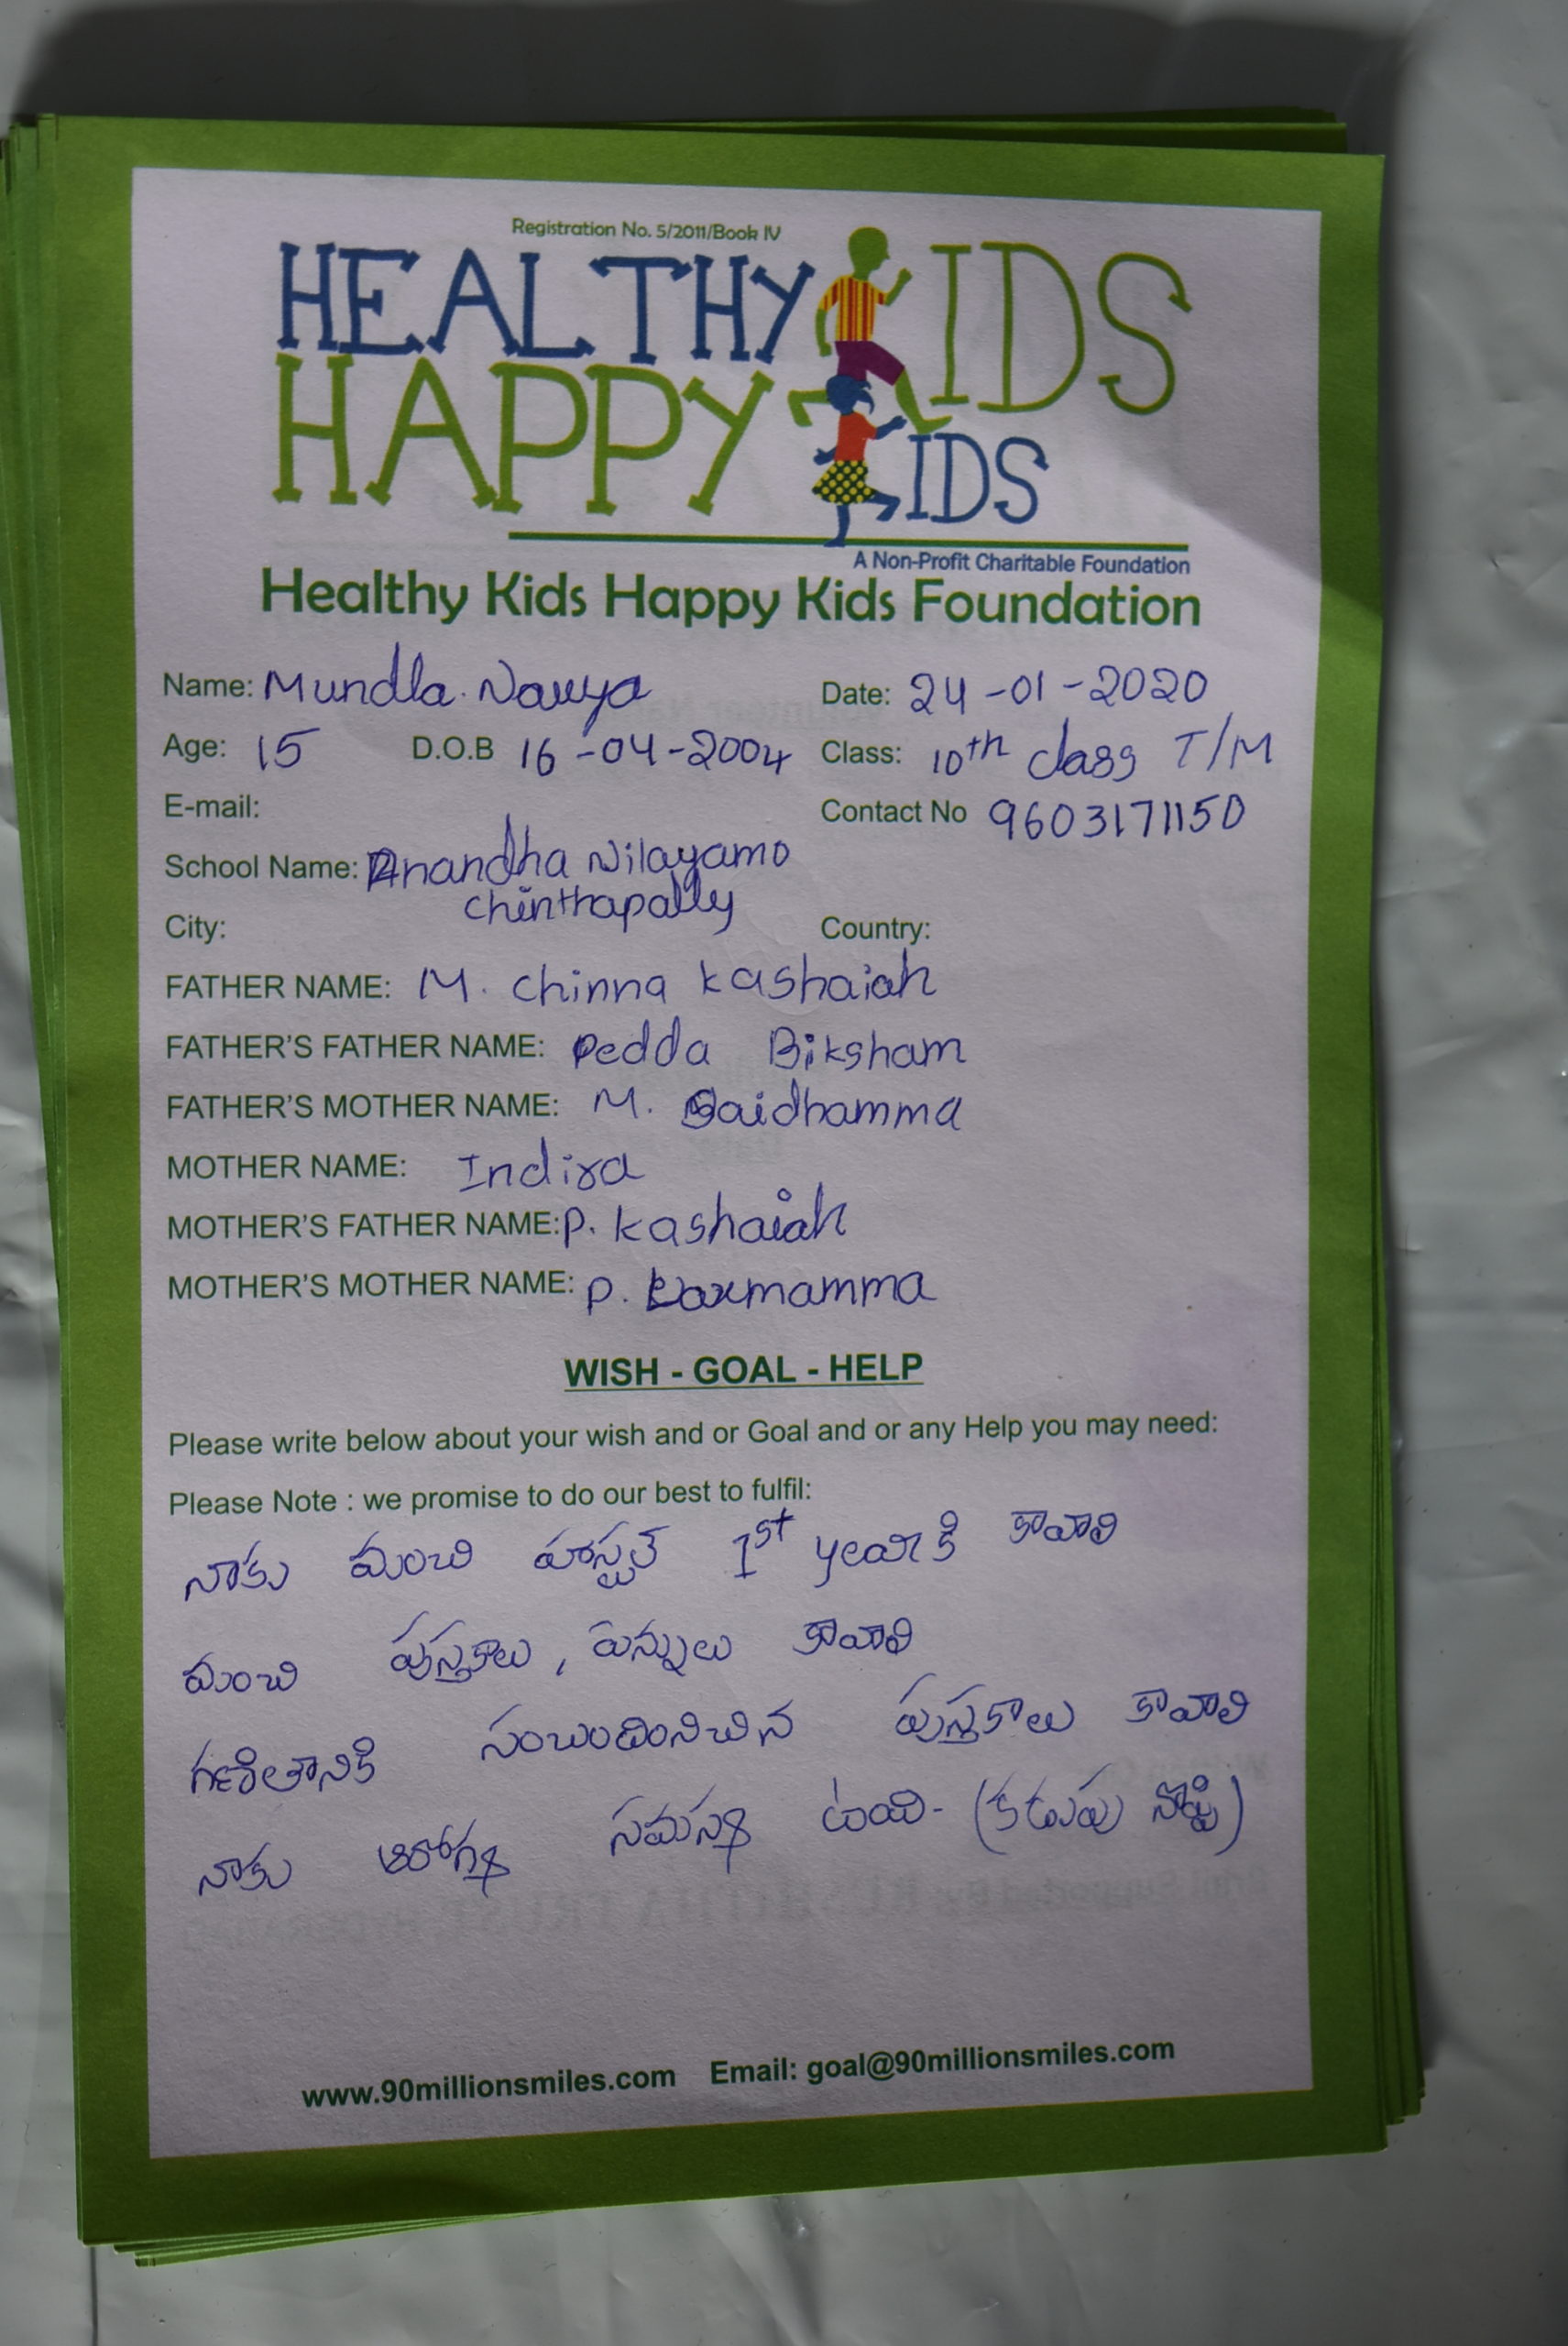 Registration No. 5/2011/Book IV
HEALTHY KIDS
HAPPY KIDS
A Non-Profit Charitable Foundation
Healthy Kids Happy Kids Foundation
Name: Mundla. Navya Date: 24-01-2020
Age: 15 D.O.B 16-04-2004 Class: 10th class T/M
E-mail: Contact No 9603171150
School Name: Anandha Nilayamo
chinthapally
City: Country:
FATHER NAME: M. chinna kashaiah
FATHER'S FATHER NAME: Pedda Biksham
FATHER'S MOTHER NAME: M. Saidhamma
MOTHER NAME: Indira
MOTHER'S FATHER NAME: P. kashaiah
MOTHER'S MOTHER NAME: P. Laxmamma
WISH - GOAL - HELP
Please write below about your wish and or Goal and or any Help you may need:
Please Note : we promise to do our best to fulfil:
నాకు మంచి హాస్టల్ 1st year కి కావాలి
మంచి పుస్తకాలు, పెన్నులు కావాలి
గణితానికి సంబందించిన పుస్తకాలు కావాలి
నాకు ఆరోగ్య సమస్య ఉంది- (కడుపు నొప్పి)
www.90millionsmiles.com Email: goal@90millionsmiles.com